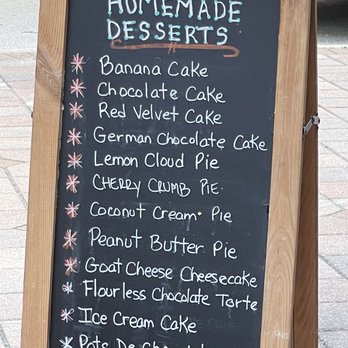 HOMEMADE
DESSERTS
* Banana Cake
* Chocolate Cake
* Red Velvet Cake
* German Chocolate Cake
* Lemon Cloud Pie
* CHERRY CRUMB PIE
* Coconut Cream Pie
* Peanut Butter Pie
* Goat Cheese Cheesecake
* Flourless Chocolate Torte
* Ice Cream Cake
* Pots De